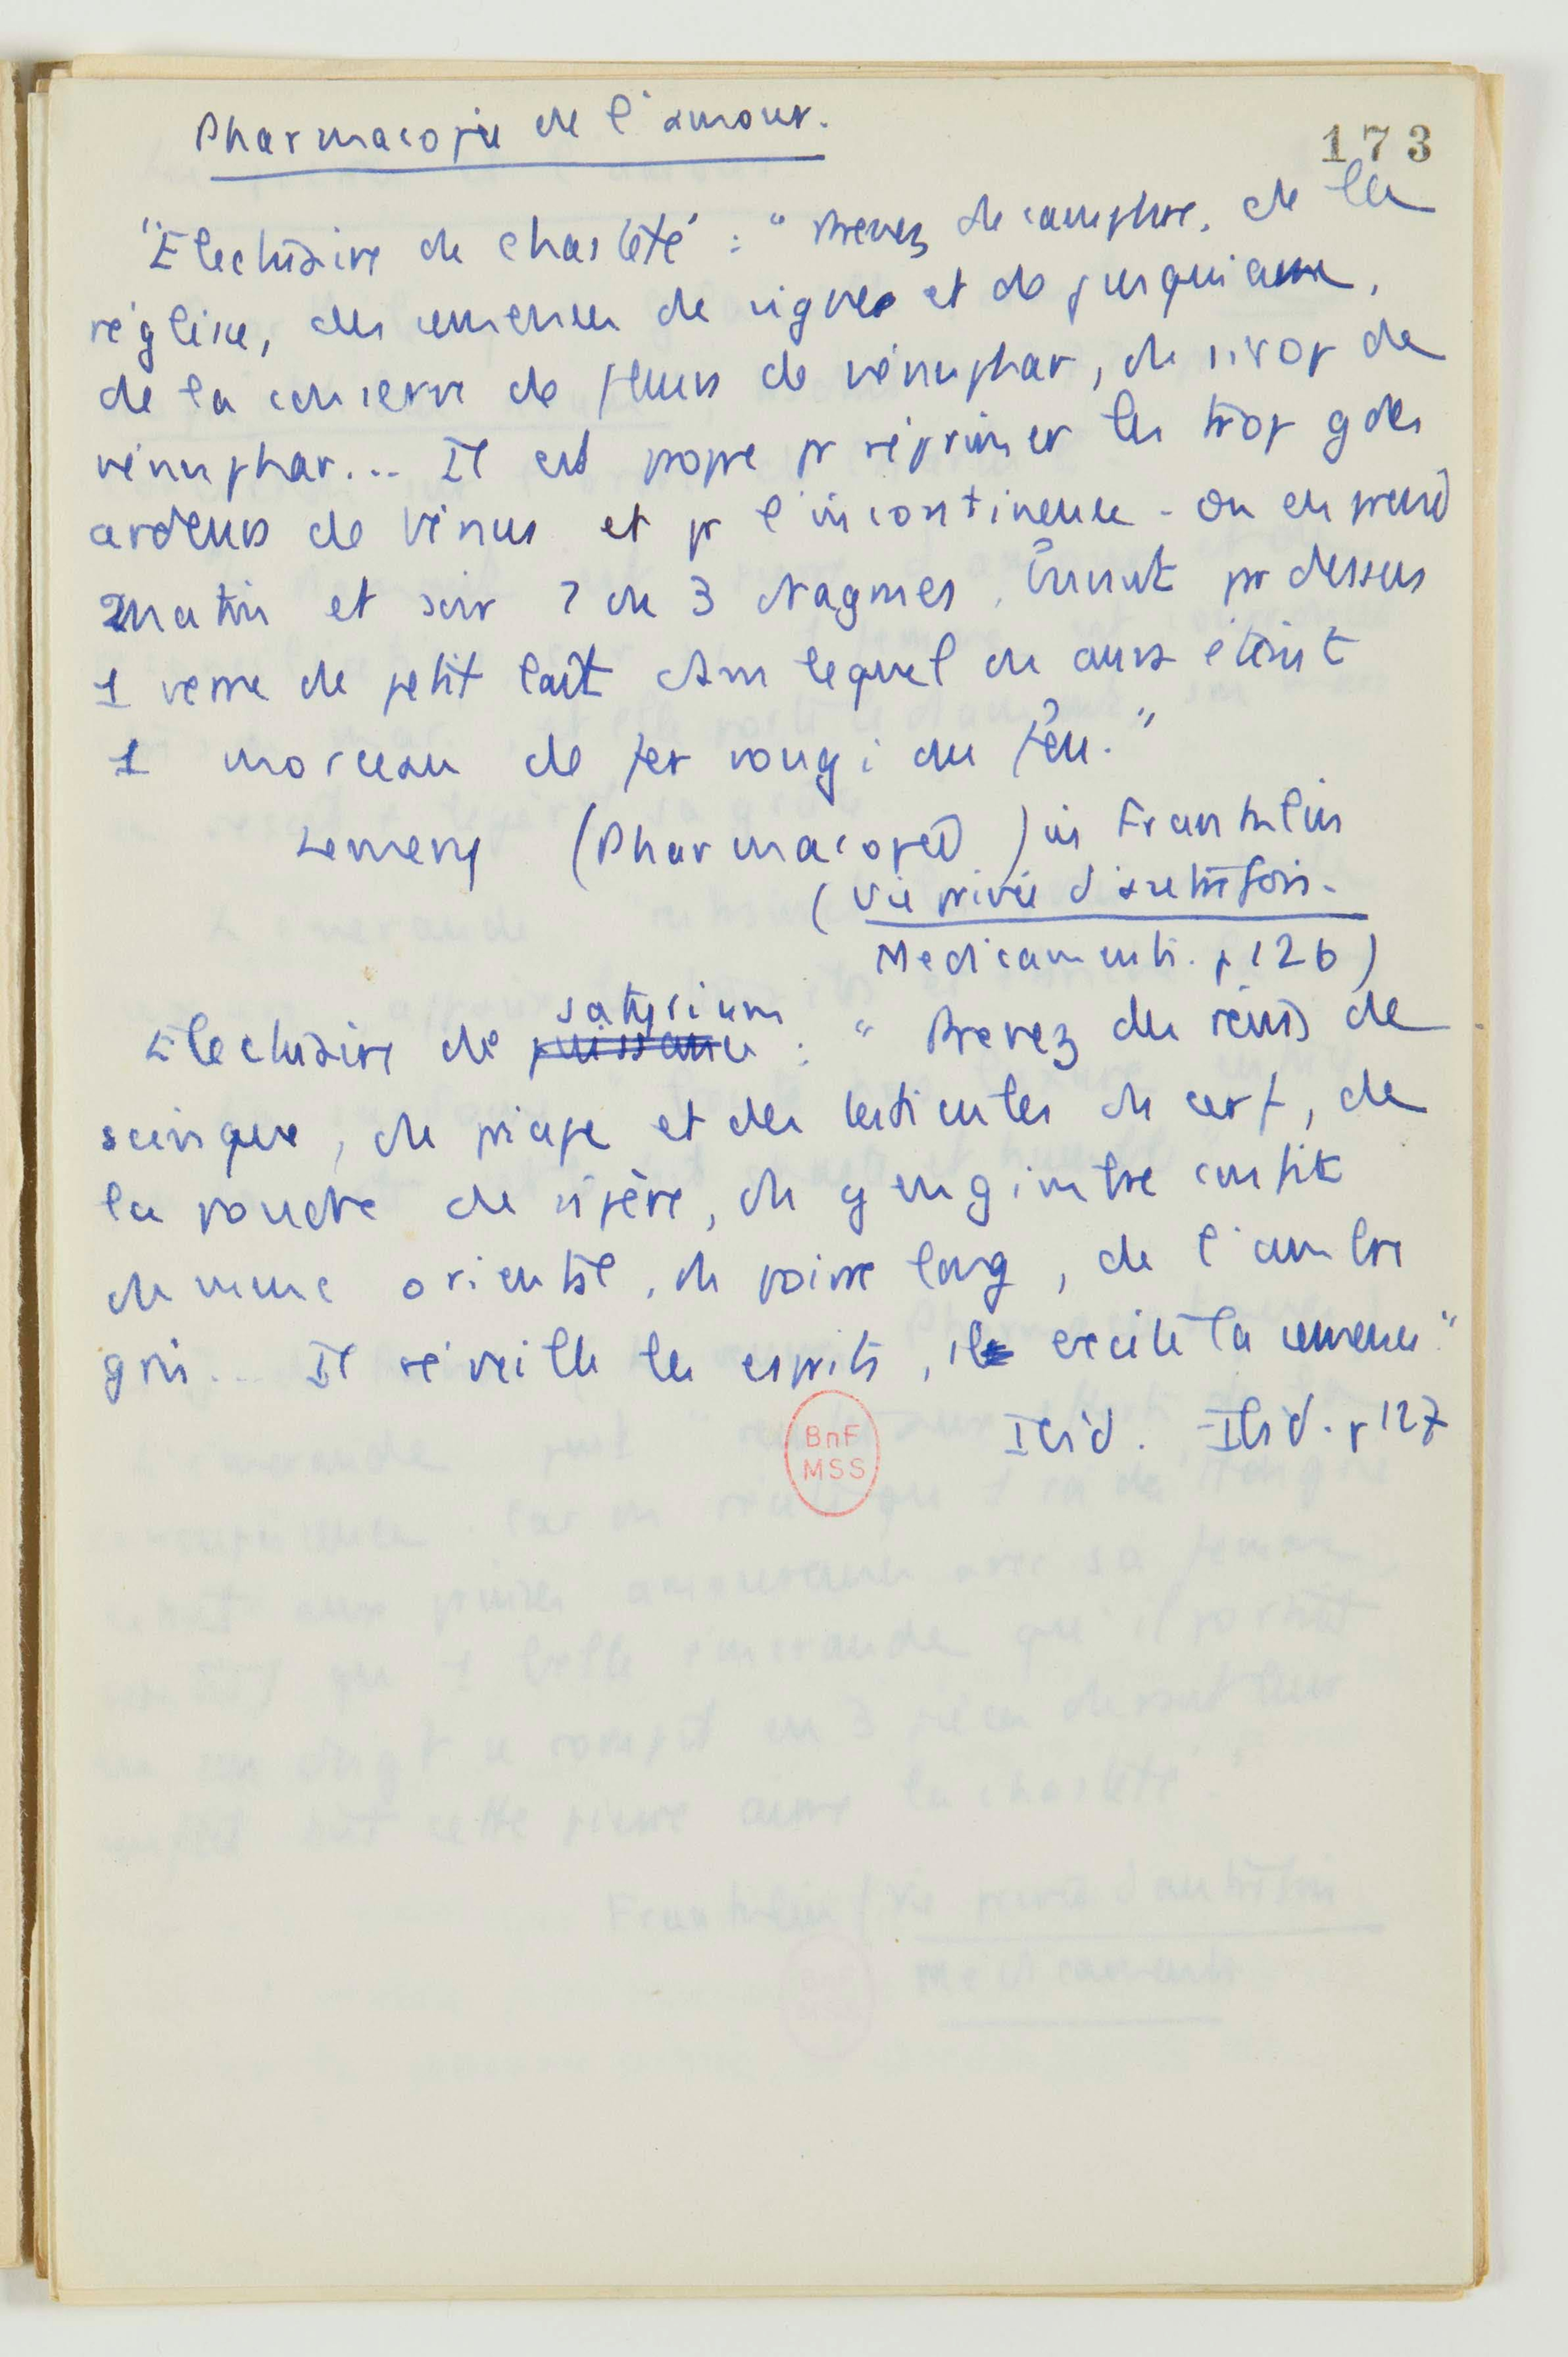 Pharmacopie de l'amour.
173
"Electuaire de chasteté : "Prenez du camphre, de la
réglisse, des semences de vignes et de jusquiame,
de la conserve de fleurs de nénuphar, du sirop de
nénuphar... Il est propre pr réprimer les trop gdes
ardeurs de Vénus et pr l'incontinence - On en prend
matin et soir 2 ou 3 dragmes, buvant pr dessus
1 verre de petit lait dans lequel on aura éteint
1 morceau de fer rougi au feu."
Lemery (Pharmacopée) in Franklin
(Vie privée d'autrefois.
Medicaments. p 126)
satyrium
Electuaire de puissance : "Prenez des reins de
scinques, du priape et des testicules de cerf, de
la poudre de vipère, du gengimbre confit
du musc oriental, du poivre long, de l'ambre
gris... Il réveille les esprits, il excite la semence"
Ibid. Ibid. p 127
BnF
MSS